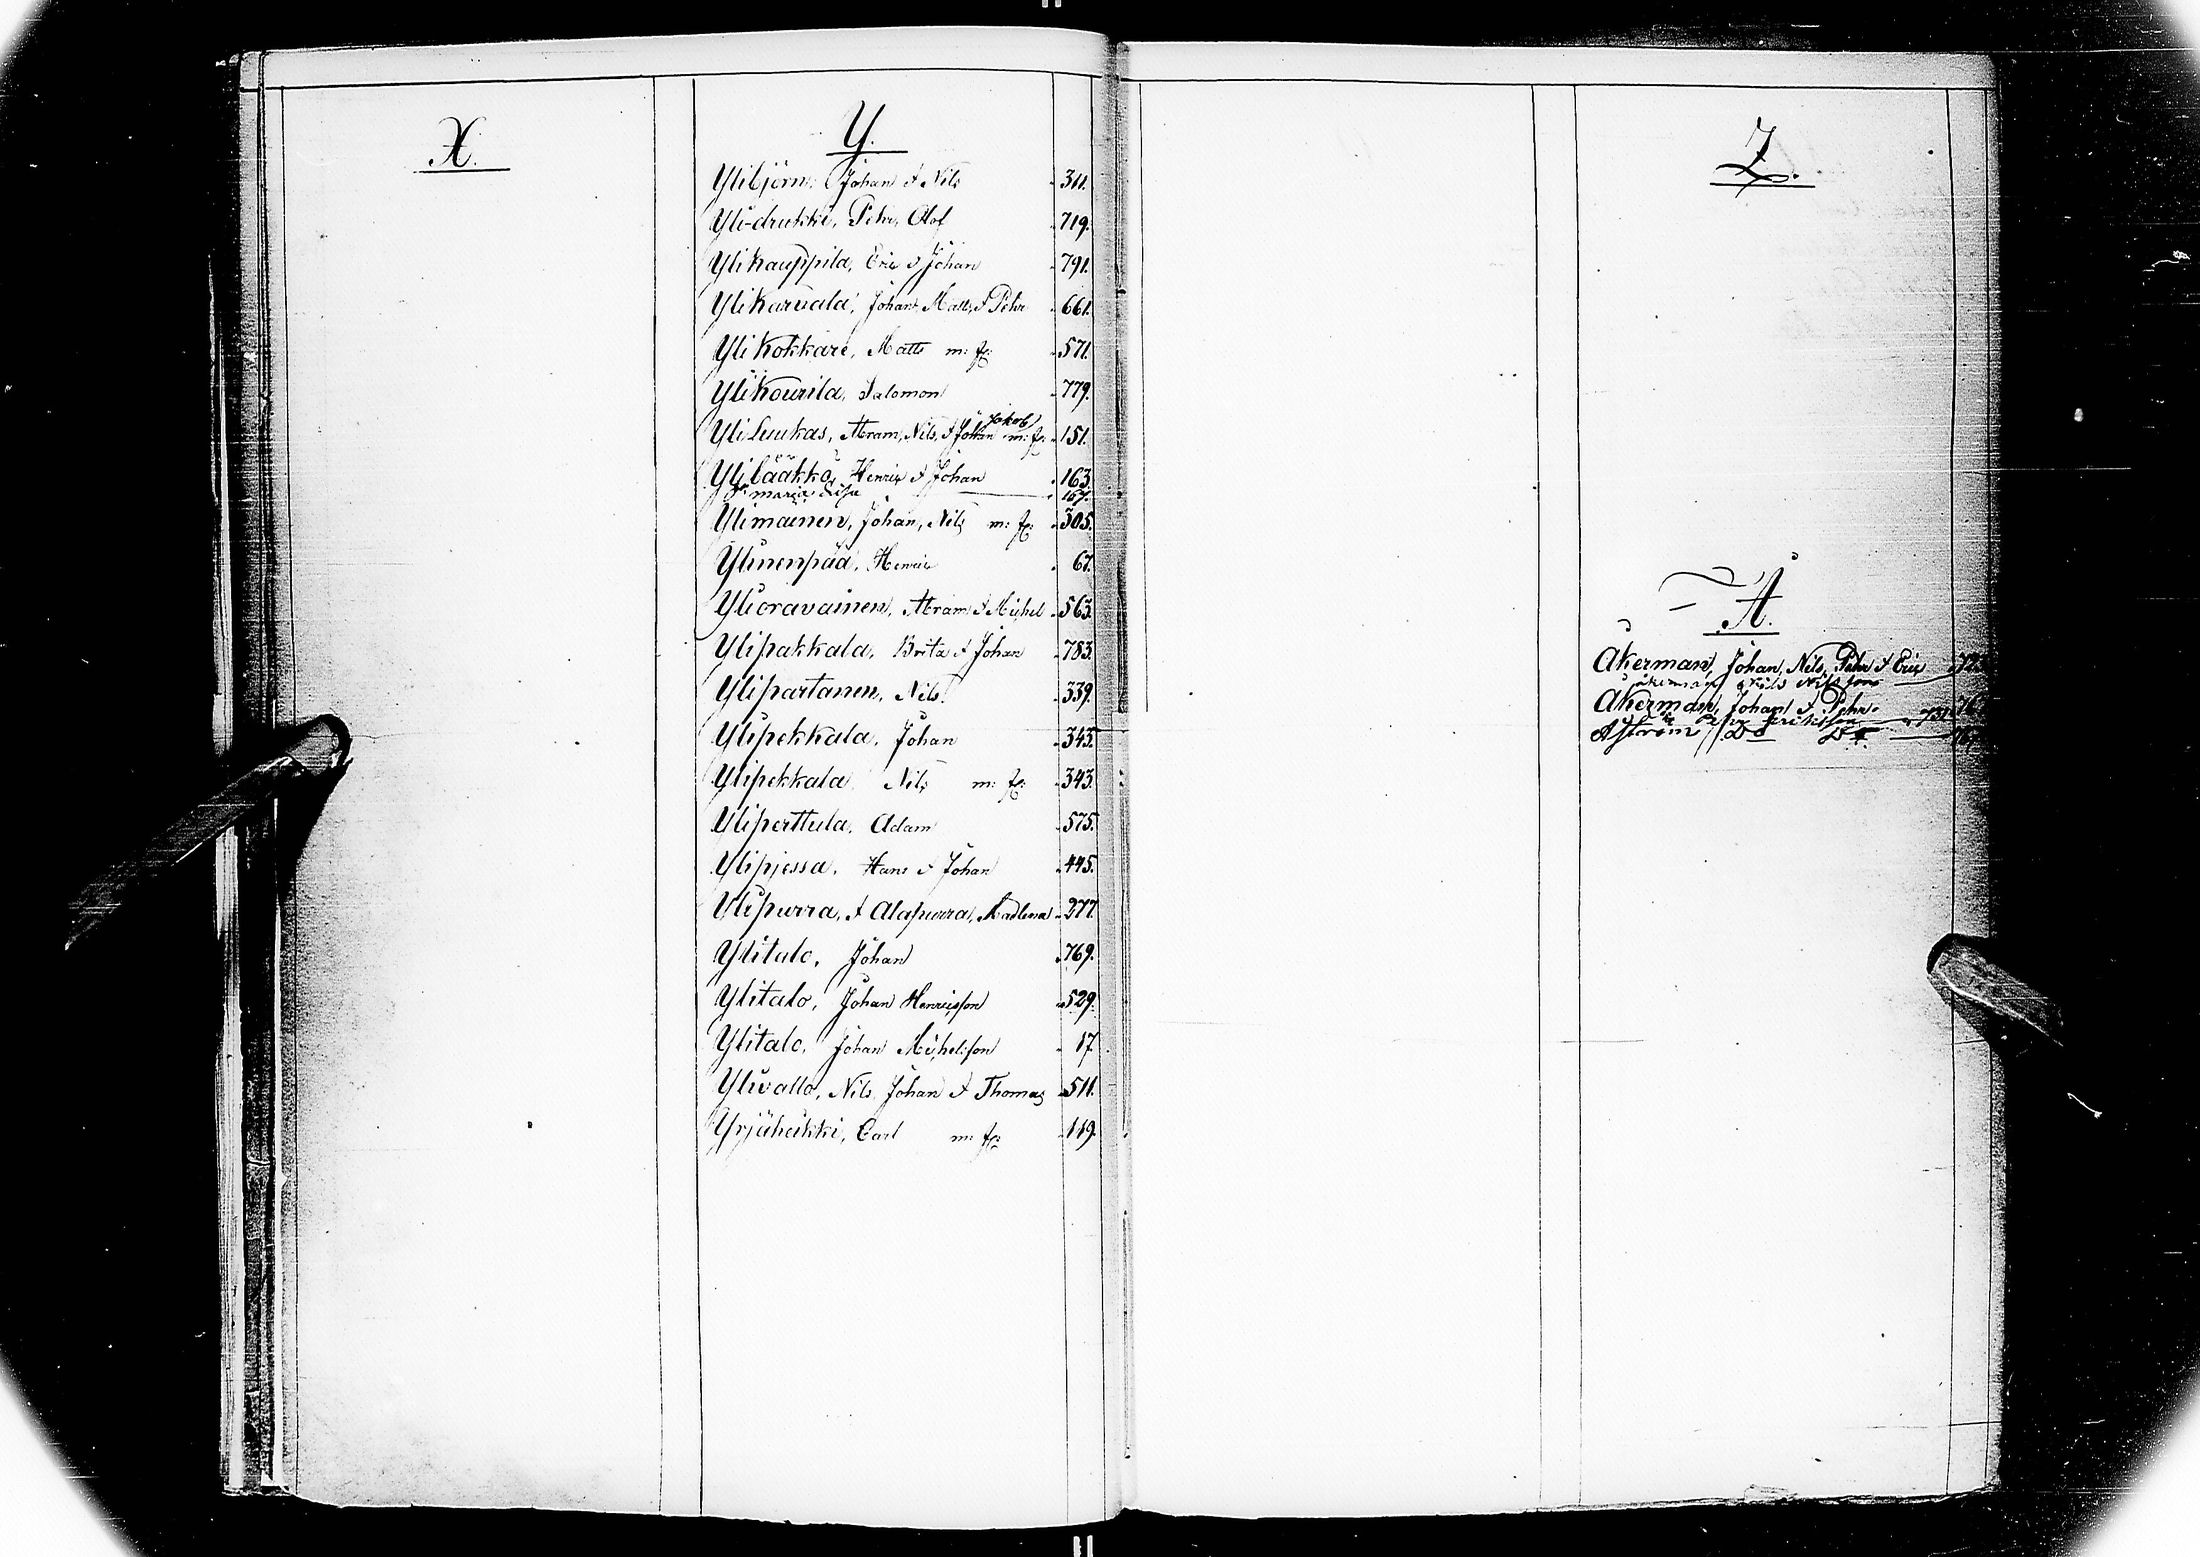 X.
Y.
Ylibjörn, Johan & Nils 311.
Yli-drukki, Pehr, Olof 719.
Ylikauppila, Eric & Johan 791.
Ylikarvala, Johan, Matts, & Pehr 661.
Ylikokkare, Matts m: fl: 571.
Ylikourila, Salomon 779.
Jakob
YliLuukas, Abram, Nils, & Johan m: fl: 151.
Ylilääkkö, Henric & Johan 163.
Do maria Lisa 167.
Ylimäinen, Johan, Nils m: fl: 305.
Ylinenpää, Henric 67.
Ylioravainen, Abram & Michel 563.
Ylipakkala, Brita & Johan 783.
Ylipartanen, Nils 339.
Ylipekkala, Johan 343.
Ylipekkala Nils m: fl: 343.
Yliperttula, Adam 575.
Ylipjessa, Hans & Johan 445.
Ylipurra, & Alapurra, Madlena 277.
Ylitalo, Johan 769.
Ylitalo, Johan Henricsson 529.
Ylitalo, Johan Michelsson 17.
Ylivallo, Nils, Johan & Thomas 511.
Yrjäheikki, Carl m: fl: 119.
Z.
Å.
Åkerman, Johan, Nils, Pehr & Eric
åkerman Nils Nilsson
Åkerman, Johan & Pehr.
Åström Do Do